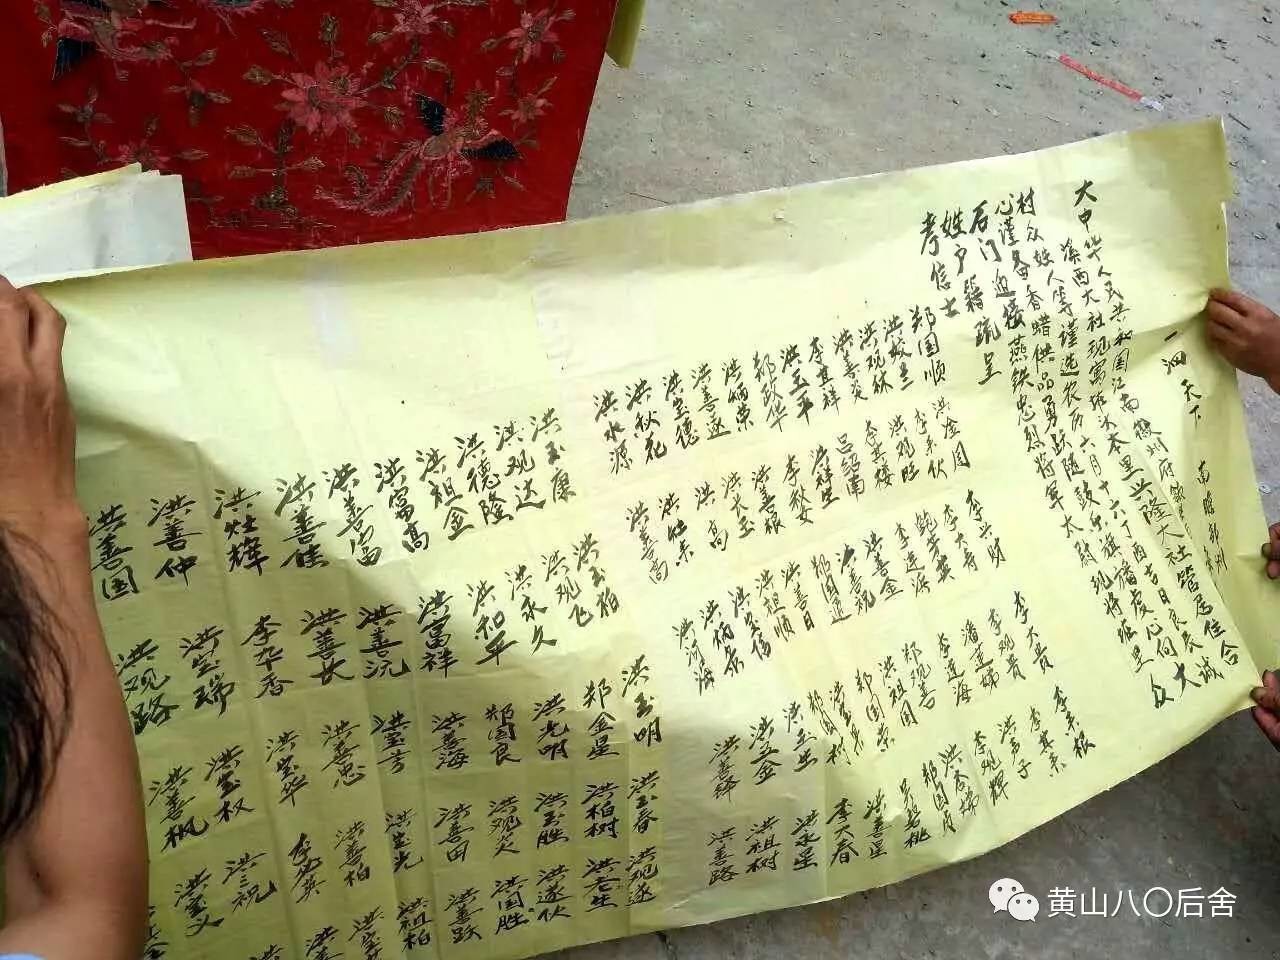 一泗天下 南瞻部洲
大中华人民共和国江南徽州府歙
溪西大社现寓 沐本里兴隆大社管居住合
村众姓人等谨选农历六月十六丁酉吉日良辰 大诚
心谨备香蜡供品勇跃随鼓乐旗旛虔心向
石门迎接燕铁忠烈将军太尉现将班里众
姓户籍疏呈
考信士
郑国顺 洪金周 李兴财 李大贵 李来根
洪蛟兰 李来伙 李大寿 李观贵 李其来
洪观林 洪观旺 鲍芳英 潘莲娣 洪声子
洪善炎 李其楼 李莲海 李辉
李其祥 吕绍南 洪善金 郑观善 洪香娣
洪玉平 洪祥生 洪善祝 洪祖国 郑国月
郑政华 李秋女 郑国进 郑国荣 吴碧桃
洪炳荣 洪善根 洪善日 洪善星
洪善遂 洪大玉 洪祖顺 郑国树 李大春
洪宝德 洪高 洪宝信 洪玉生 洪永星
洪秋花 洪灶来 洪炳香 洪玉金 洪祖树
洪水源 洪善高 洪河海 洪善锋 洪善路
洪玉康 洪玉柏 洪玉明 洪玉春 洪观遂
洪观达 洪观飞 郑金星 洪柏树 洪君生
洪德隆 洪永久 洪光明 洪玉胜 洪遂伙
洪祖金 洪和平 郑国良 洪观炎 洪国胜
洪富高 洪富祥 洪善海 洪善田 洪善跃
洪善富 洪善沅 洪宝芳 洪宝光 洪祖柏
洪善佳 洪善长 洪善忠 洪善柏 洪宝
洪灶辉 李华香 洪宝华 李英
洪善仲 洪宝瑞 洪宝权 洪三祝
洪善国 洪观路 洪善枫 洪宝义
黄山八〇后舍